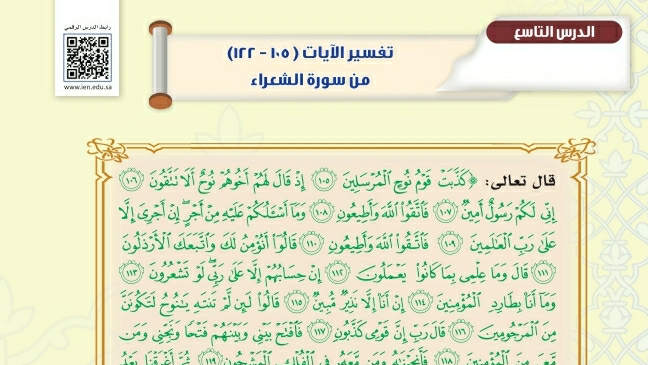 رابط الدرس الرقمي
www.ien.edu.sa
الدرس التاسع
تفسير الآيات (١٠٥ - ١٢٢)
من سورة الشعراء
قال تعالى: ﴿كَذَّبَتْ قَوْمُ نُوحٍ الْمُرْسَلِينَ ١٠٥ إِذْ قَالَ لَهُمْ أَخُوهُمْ نُوحٌ أَلَا تَتَّقُونَ ١٠٦
إِنِّي لَكُمْ رَسُولٌ أَمِينٌ ١٠٧ فَاتَّقُوا اللَّهَ وَأَطِيعُونِ ١٠٨ وَمَا أَسْأَلُكُمْ عَلَيْهِ مِنْ أَجْرٍ إِنْ أَجْرِيَ إِلَّا
عَلَىٰ رَبِّ الْعَالَمِينَ ١٠٩ فَاتَّقُوا اللَّهَ وَأَطِيعُونِ ١١٠ قَالُوا أَنُؤْمِنُ لَكَ وَاتَّبَعَكَ الْأَرْذَلُونَ
١١١ قَالَ وَمَا عِلْمِي بِمَا كَانُوا يَعْمَلُونَ ١١٢ إِنْ حِسَابُهُمْ إِلَّا عَلَىٰ رَبِّي لَوْ تَشْعُرُونَ ١١٣
وَمَا أَنَا بِطَارِدِ الْمُؤْمِنِينَ ١١٤ إِنْ أَنَا إِلَّا نَذِيرٌ مُّبِينٌ ١١٥ قَالُوا لَئِن لَّمْ تَنتَهِ يَا نُوحُ لَتَكُونَنَّ
مِنَ الْمَرْجُومِينَ ١١٦ قَالَ رَبِّ إِنَّ قَوْمِي كَذَّبُونِ ١١٧ فَافْتَحْ بَيْنِي وَبَيْنَهُمْ فَتْحًا وَنَجِّنِي وَمَن
مَّعِيَ مِنَ الْمُؤْمِنِينَ ١١٨ فَأَنجَيْنَاهُ وَمَن مَّعَهُ فِي الْفُلْكِ الْمَشْحُونِ ١١٩ ثُمَّ أَغْرَقْنَا بَعْدُ